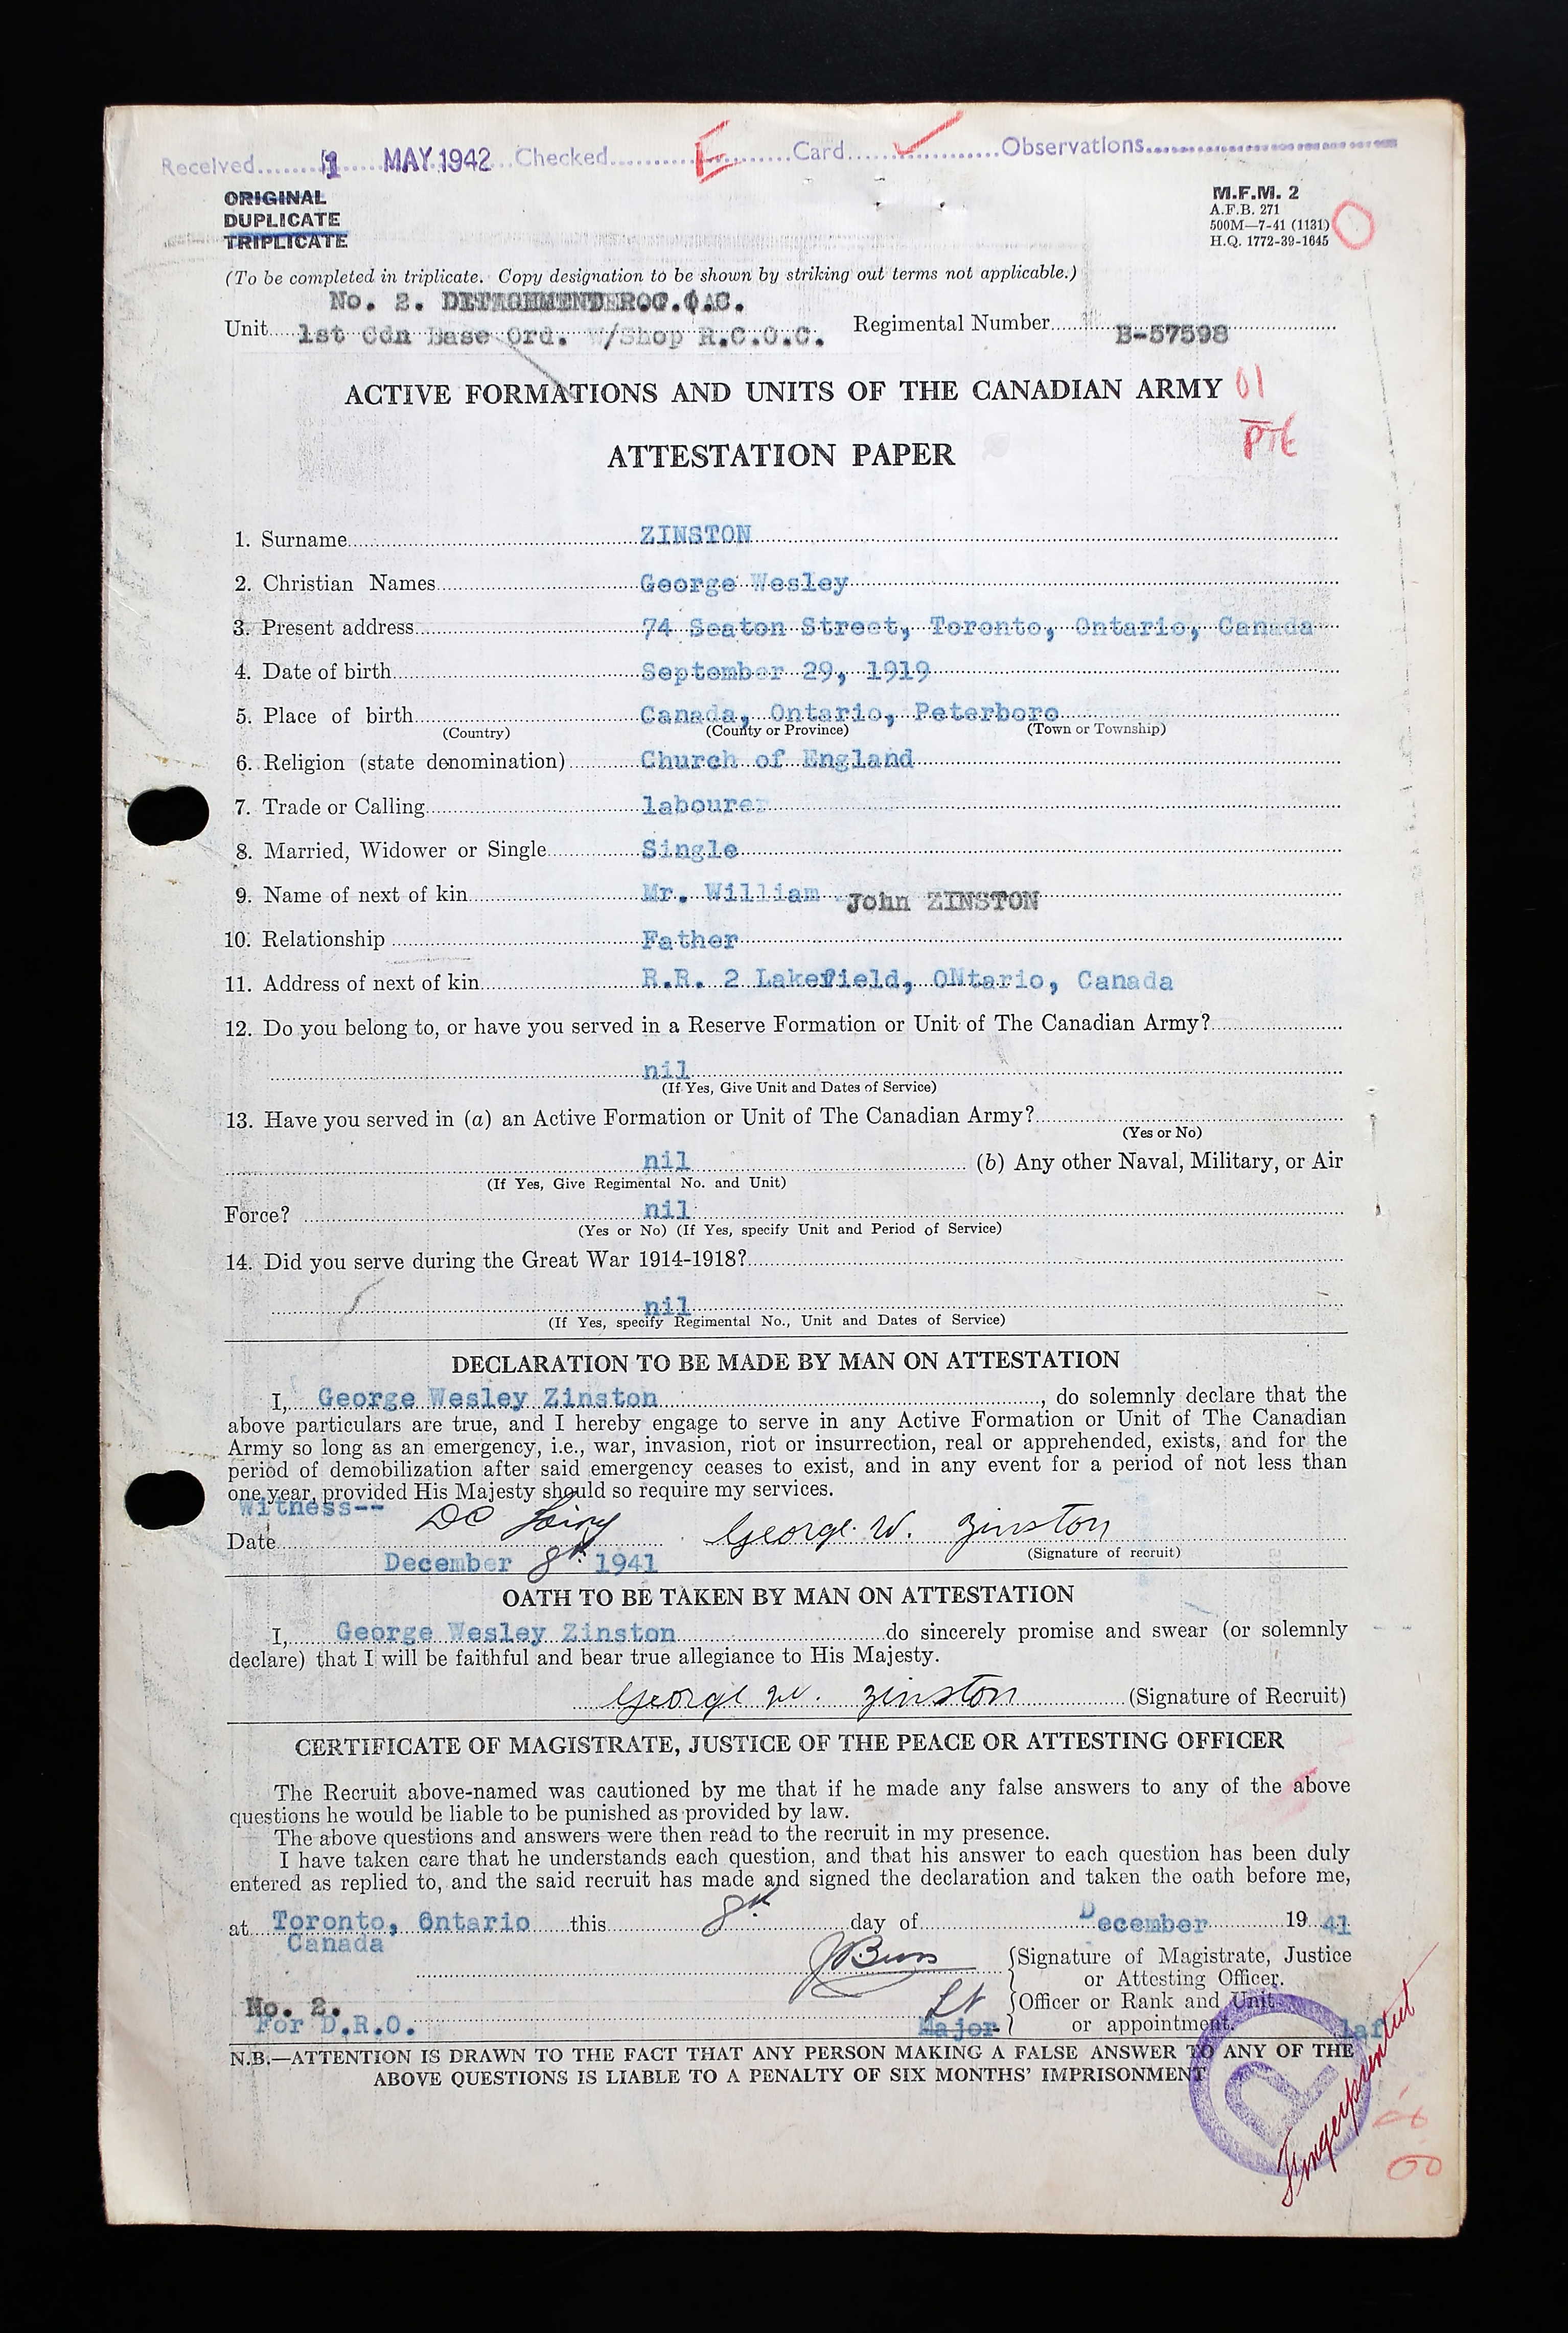 Received 1 MAY 1942 Checked E Card Observations
ORIGINAL
DUPLICATE
TRIPLICATE
M.F.M. 2
A.F.B. 271
500M—7-41 (1131)
H.Q. 1772-39-1645
(To be completed in triplicate. Copy designation to be shown by striking out terms not applicable.)
No. 2.
Unit 1st Cdn Base Ord. W/Shop R.C.O.C. Regimental Number B-57598
ACTIVE FORMATIONS AND UNITS OF THE CANADIAN ARMY 01
Pte
ATTESTATION PAPER
1. Surname ZINSTON
2. Christian Names George Wesley
3. Present address 74 Seaton Street, Toronto, Ontario, Canada
4. Date of birth September 29, 1919
5. Place of birth Canada, Ontario, Peterboro
(Country) (County or Province) (Town or Township)
6. Religion (state denomination) Church of England
7. Trade or Calling labourer
8. Married, Widower or Single Single
9. Name of next of kin Mr. William John ZINSTON
10. Relationship Father
11. Address of next of kin R.R. 2 Lakefield, ONtario, Canada
12. Do you belong to, or have you served in a Reserve Formation or Unit of The Canadian Army?
nil
(If Yes, Give Unit and Dates of Service)
13. Have you served in (a) an Active Formation or Unit of The Canadian Army?
(Yes or No)
nil (b) Any other Naval, Military, or Air
(If Yes, Give Regimental No. and Unit)
Force? nil
(Yes or No) (If Yes, specify Unit and Period of Service)
14. Did you serve during the Great War 1914-1918?
nil
(If Yes, specify Regimental No., Unit and Dates of Service)
DECLARATION TO BE MADE BY MAN ON ATTESTATION
I, George Wesley Zinston, do solemnly declare that the
above particulars are true, and I hereby engage to serve in any Active Formation or Unit of The Canadian
Army so long as an emergency, i.e., war, invasion, riot or insurrection, real or apprehended, exists, and for the
period of demobilization after said emergency ceases to exist, and in any event for a period of not less than
one year, provided His Majesty should so require my services.
Witness--
Date George W. Zinston
(Signature of recruit)
December 8th 1941
OATH TO BE TAKEN BY MAN ON ATTESTATION
I, George Wesley Zinston do sincerely promise and swear (or solemnly
declare) that I will be faithful and bear true allegiance to His Majesty.
George W. Zinston (Signature of Recruit)
CERTIFICATE OF MAGISTRATE, JUSTICE OF THE PEACE OR ATTESTING OFFICER
The Recruit above-named was cautioned by me that if he made any false answers to any of the above
questions he would be liable to be punished as provided by law.
The above questions and answers were then read to the recruit in my presence.
I have taken care that he understands each question, and that his answer to each question has been duly
entered as replied to, and the said recruit has made and signed the declaration and taken the oath before me,
at Toronto, Ontario this 8th day of December 1941
Canada
Signature of Magistrate, Justice
or Attesting Officer.
No. 2. Lt Officer or Rank and Unit
For D.R.O. Major or appointment. laf
N.B.—ATTENTION IS DRAWN TO THE FACT THAT ANY PERSON MAKING A FALSE ANSWER TO ANY OF THE
ABOVE QUESTIONS IS LIABLE TO A PENALTY OF SIX MONTHS' IMPRISONMENT